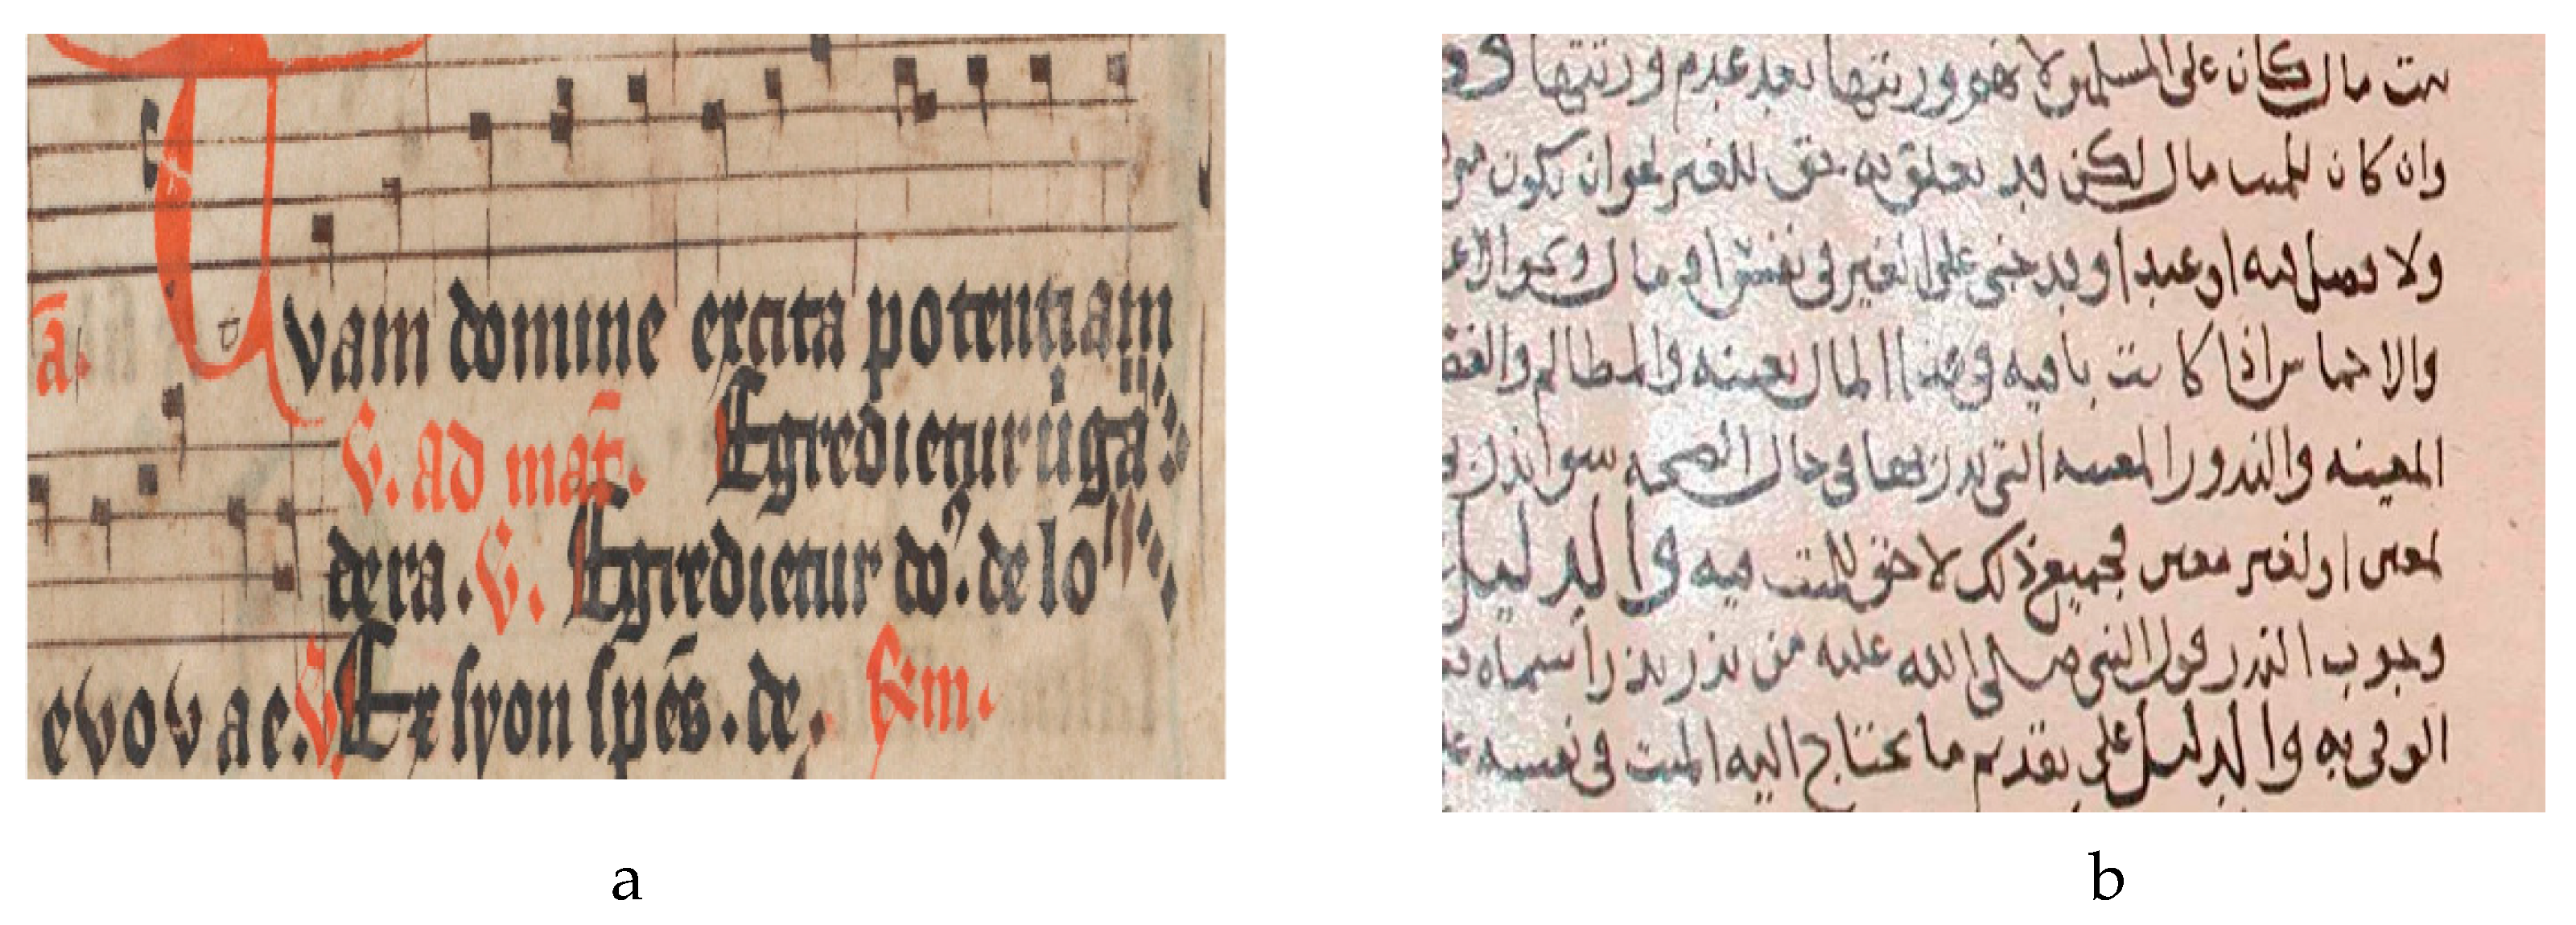 Tvam domine excita potentiam
a.
V. ad mat. Egredietur uirga
de ra. V. Egredietur do. de lo
evovae. V Ex syon spes. de. Km.
a
مال كان على المسلمين لا هو وريثها بعد عدم وريثها
وان كان للميت مال لكن قد تعلق به حق للغير نحو ان يكون
ولا فيه او عبدا وقد جنى على الغير في نفس او مال
والاخماس اذا كانت باقيه في هذا المال بعينه والمظالم
المعينه والنذور المعينه التي نذر بها في حال الصحه سوا نذر
لمعين او لغير معين فجميع ذلك لا حق للميت فيه والدليل
وجوب النذر قول النبي صلى الله عليه من نذر نذرا سماه
الوفى به والدليل على تقديم ما يحتاج اليه الميت في نفسه
b